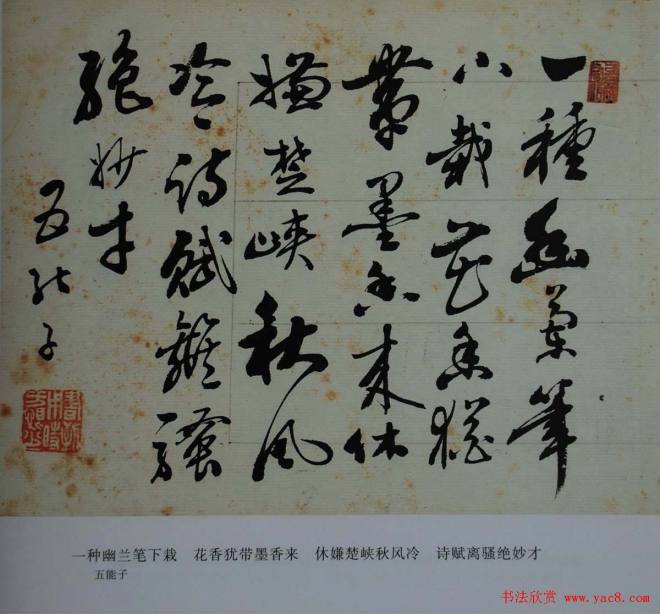 一種幽蘭筆
下栽花香猶
帶墨香来休
嫌楚峡秋风
冷诗赋離騷
绝妙才
五能子
一种幽兰笔下栽 花香犹带墨香来 休嫌楚峡秋风冷 诗赋离骚绝妙才
五能子
书法欣赏 www.yac8.com